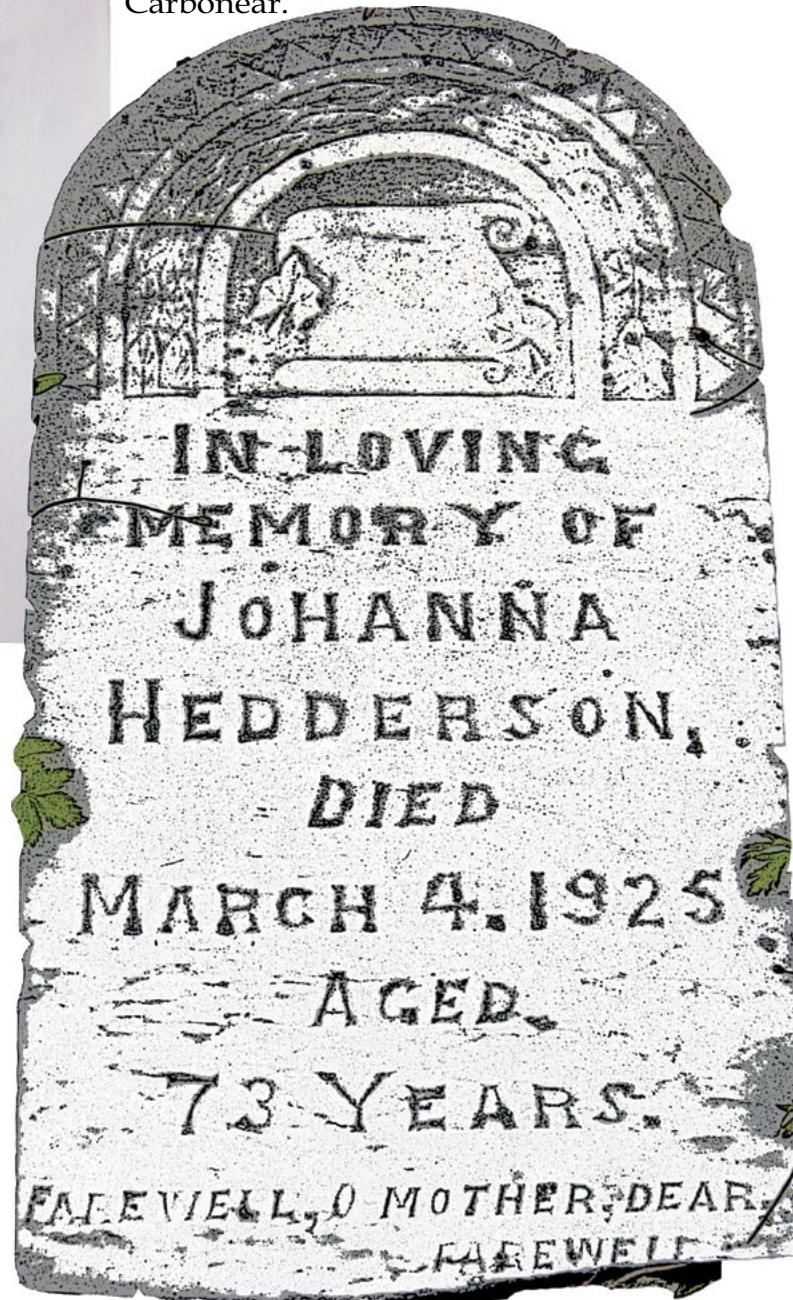 Carbonear.
IN LOVING
MEMORY OF
JOHANNA
HEDDERSON,
DIED
MARCH 4. 1925
AGED.
73 YEARS.
FAREWELL, O MOTHER, DEAR,
FAREWELL